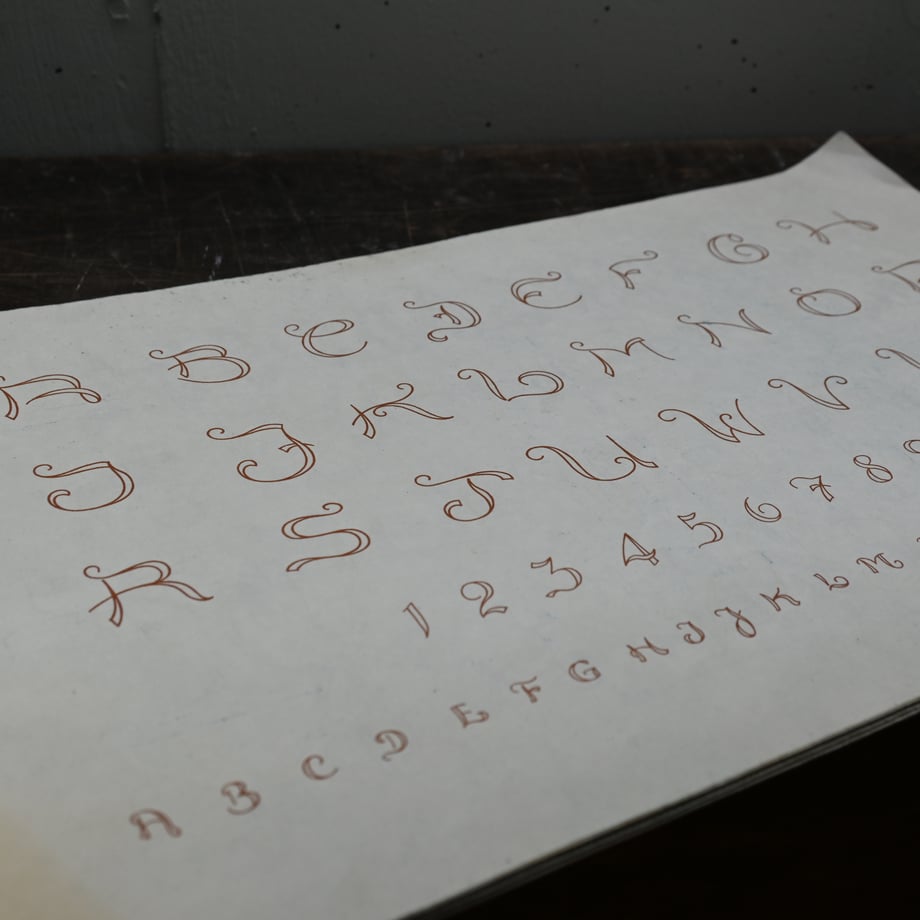 A B C D E F G H
I J K L M N O
R S T U W V
1 2 3 4 5 6 7 8
A B C D E F G H I J K L M